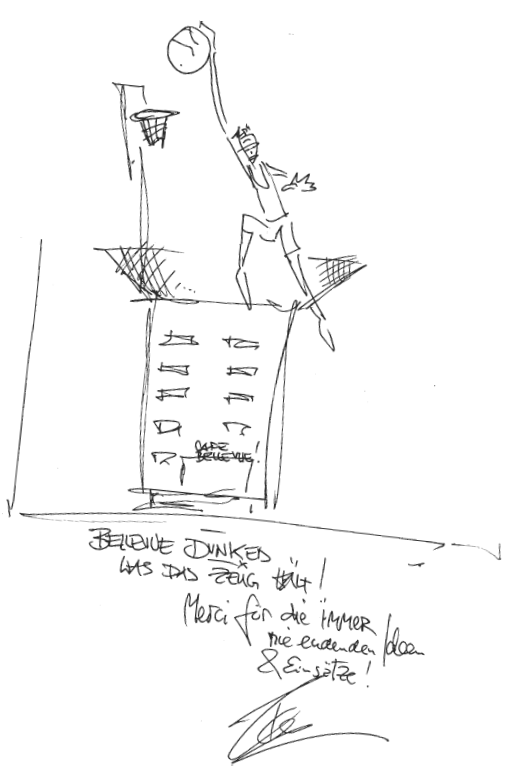 CAFE
BELLEVUE!
BELLEVUE DUNKED
WAS DAS ZEUG HÄLT!
Merci für die IMMER
nie endenden Ideen
& Einsätze!